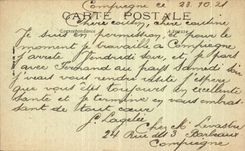 Compiegne ce 23.10.21
CARTE POSTALE
Chere cousin, chere cousine
Correspondance
Je suis en permission, et pour le
moment je travaille a Compiegne
j'arrete Vendredi soir, et je pars
avec Fernand au pays samedi
j'irais vous rendre visite j'espere
que vous êtes toujours en excellente
santé et je termine en vous embras
sant de tout coeur
J. Lagelée
Chez Mr
24 Rue des 3 Barbeaux
Compiegne